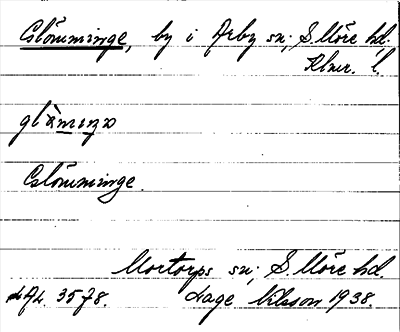 Glömminge, by i Arby sn; S. Möre hd.
Klmr. l.
glömminge
Glömminge.
Mortorps sn; S. Möre hd.
3578. Åage Nilsson 1938.